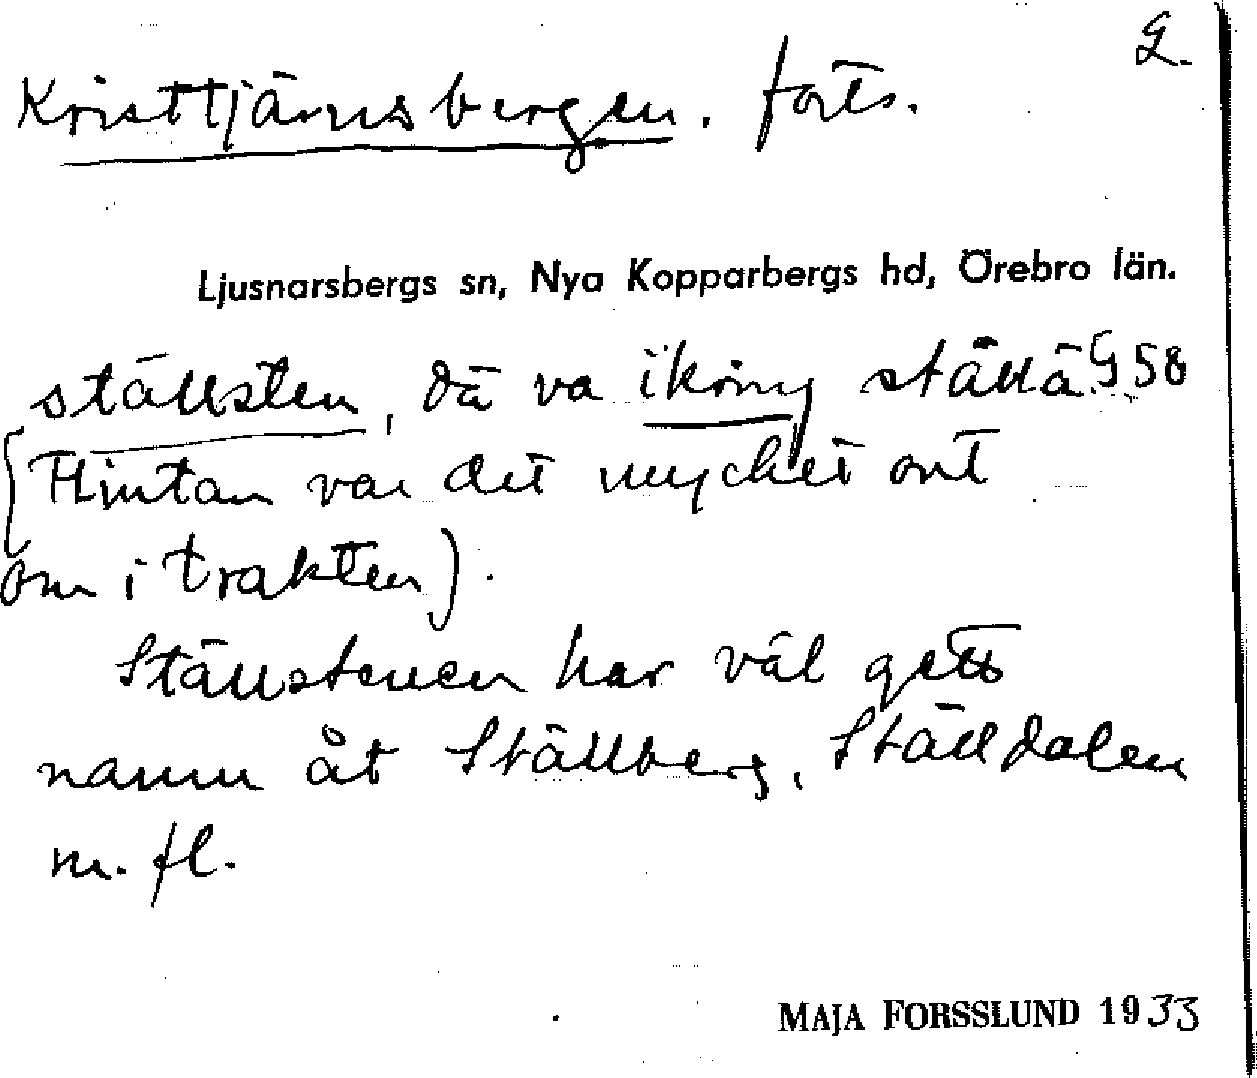 2.
Kristtjärnsbergen. forts.
Ljusnarsbergs sn, Nya Kopparbergs hd, Örebro län.
ställsten, dä va ikring ställä G 58
(Flintan var det mycket ont
om i trakten).
Ställstenen har väl gett
namn åt Ställberg, Ställdalen
m. fl.
MAJA FORSSLUND 1933